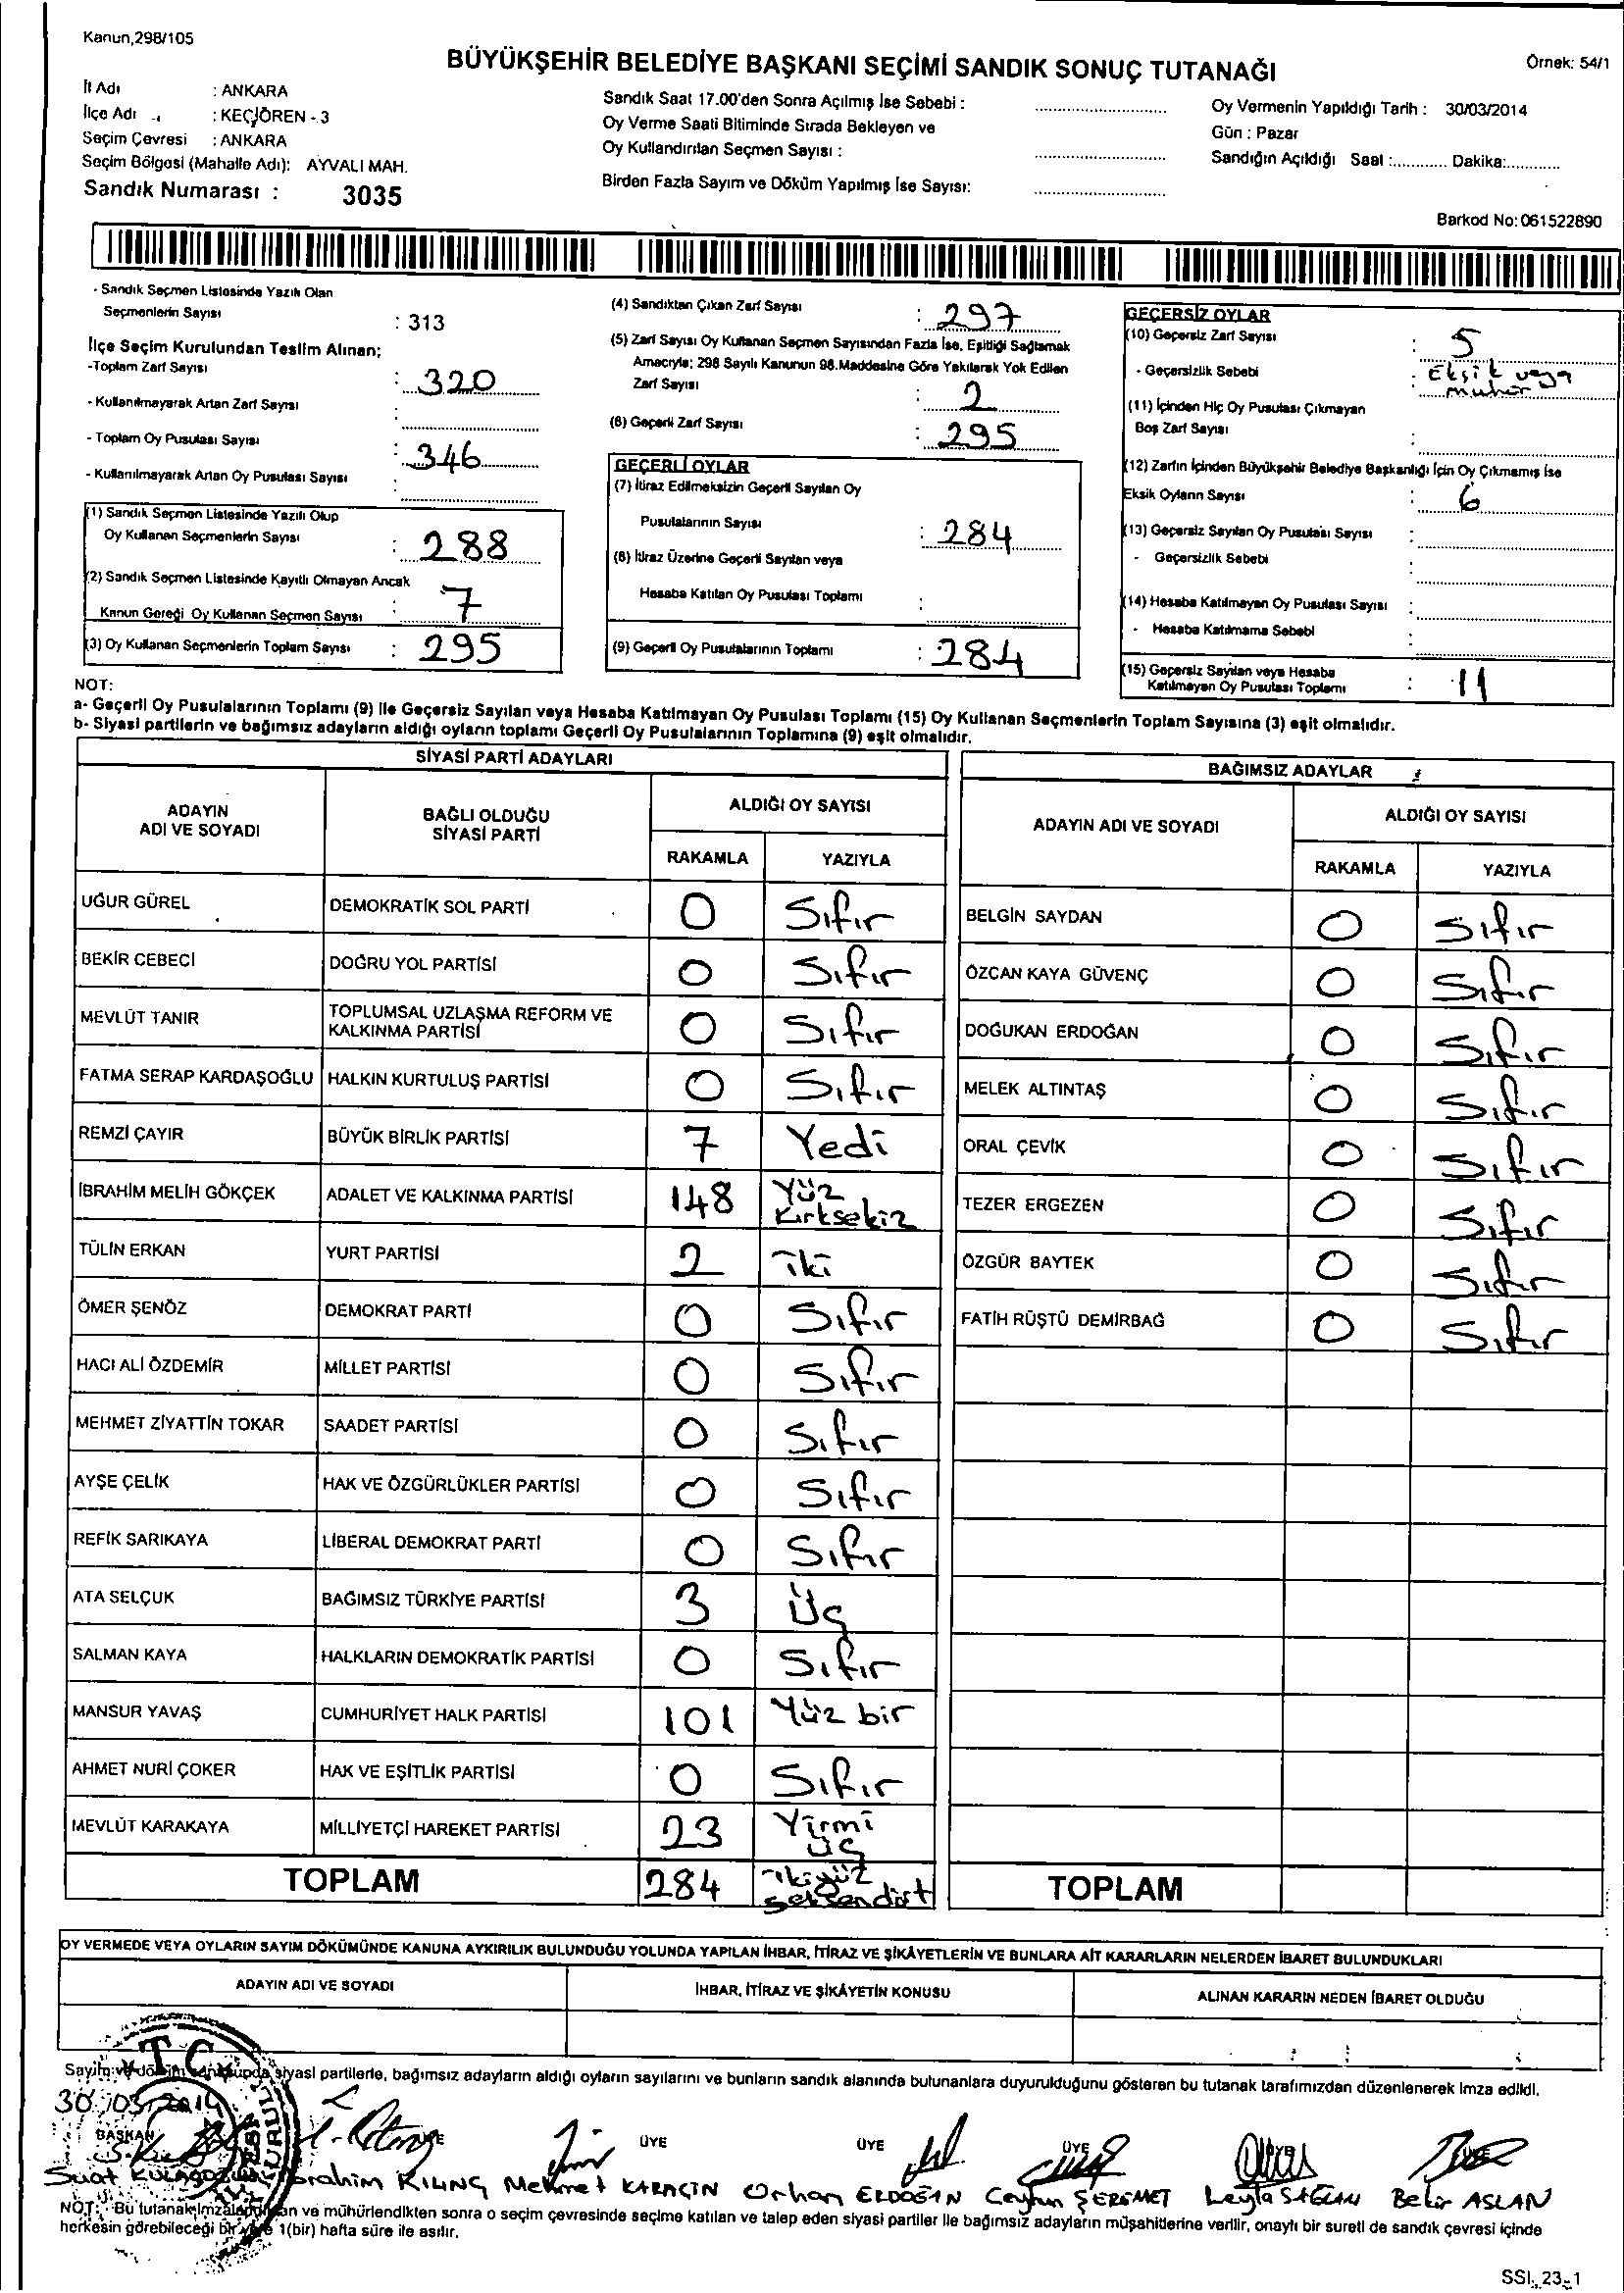 Kanun,298/105
BÜYÜKŞEHİR BELEDİYE BAŞKANI SEÇİMİ SANDIK SONUÇ TUTANAĞI
Örnek: 54/1
İl Adı : ANKARA
İlçe Adı : KEÇİÖREN - 3
Seçim Çevresi : ANKARA
Seçim Bölgesi (Mahalle Adı): AYVALI MAH.
Sandık Numarası : 3035
Sandık Saat 17.00'den Sonra Açılmış İse Sebebi :
Oy Verme Saati Bitiminde Sırada Bekleyen ve
Oy Kullandırılan Seçmen Sayısı :
Birden Fazla Sayım ve Döküm Yapılmış İse Sayısı:
Oy Vermenin Yapıldığı Tarih : 30/03/2014
Gün : Pazar
Sandığın Açıldığı Saat :............ Dakika:............
Barkod No: 061522890
- Sandık Seçmen Listesinde Yazılı Olan
Seçmenlerin Sayısı : 313
İlçe Seçim Kurulundan Teslim Alınan;
-Toplam Zarf Sayısı : 320
- Kullanılmayarak Artan Zarf Sayısı :
- Toplam Oy Pusulası Sayısı : 346
- Kullanılmayarak Artan Oy Pusulası Sayısı :
(1) Sandık Seçmen Listesinde Yazılı Olup
Oy Kullanan Seçmenlerin Sayısı : 288
(2) Sandık Seçmen Listesinde Kayıtlı Olmayan Ancak
Kanun Gereği Oy Kullanan Seçmen Sayısı : 7
(3) Oy Kullanan Seçmenlerin Toplam Sayısı : 295
(4) Sandıktan Çıkan Zarf Sayısı : 297
(5) Zarf Sayısı Oy Kullanan Seçmen Sayısından Fazla İse, Eşitliği Sağlamak
Amacıyla; 298 Sayılı Kanunun 98.Maddesine Göre Yakılarak Yok Edilen
Zarf Sayısı : 2
(6) Geçerli Zarf Sayısı : 295
GEÇERLİ OYLAR
(7) İtiraz Edilmeksizin Geçerli Sayılan Oy
Pusulalarının Sayısı : 284
(8) İtiraz Üzerine Geçerli Sayılan veya
Hesaba Katılan Oy Pusulası Toplamı :
(9) Geçerli Oy Pusulalarının Toplamı : 284
GEÇERSİZ OYLAR
(10) Geçersiz Zarf Sayısı : 5
- Geçersizlik Sebebi : Eksik veya
mühür
(11) İçinden Hiç Oy Pusulası Çıkmayan
Boş Zarf Sayısı :
(12) Zarfın İçinden Büyükşehir Belediye Başkanlığı İçin Oy Çıkmamış İse
Eksik Oyların Sayısı : 6
(13) Geçersiz Sayılan Oy Pusulası Sayısı :
- Geçersizlik Sebebi :
(14) Hesaba Katılmayan Oy Pusulası Sayısı :
- Hesaba Katılmama Sebebi :
(15) Geçersiz Sayılan veya Hesaba
Katılmayan Oy Pusulası Toplamı : 11
NOT:
a- Geçerli Oy Pusulalarının Toplamı (9) İle Geçersiz Sayılan veya Hesaba Katılmayan Oy Pusulası Toplamı (15) Oy Kullanan Seçmenlerin Toplam Sayısına (3) eşit olmalıdır.
b- Siyasi partilerin ve bağımsız adayların aldığı oyların toplamı Geçerli Oy Pusulalarının Toplamına (9) eşit olmalıdır.
SİYASİ PARTİ ADAYLARI
ADAYIN ADI VE SOYADI
BAĞLI OLDUĞU SİYASİ PARTİ
ALDIĞI OY SAYISI
RAKAMLA YAZIYLA
UĞUR GÜREL DEMOKRATİK SOL PARTİ 0 Sıfır
BEKİR CEBECİ DOĞRU YOL PARTİSİ 0 Sıfır
MEVLÜT TANIR TOPLUMSAL UZLAŞMA REFORM VE KALKINMA PARTİSİ 0 Sıfır
FATMA SERAP KARDAŞOĞLU HALKIN KURTULUŞ PARTİSİ 0 Sıfır
REMZİ ÇAYIR BÜYÜK BİRLİK PARTİSİ 7 Yedi
İBRAHİM MELİH GÖKÇEK ADALET VE KALKINMA PARTİSİ 148 Yüz Kırksekiz
TÜLİN ERKAN YURT PARTİSİ 2 iki
ÖMER ŞENÖZ DEMOKRAT PARTİ 0 Sıfır
HACI ALİ ÖZDEMİR MİLLET PARTİSİ 0 Sıfır
MEHMET ZİYATTİN TOKAR SAADET PARTİSİ 0 Sıfır
AYŞE ÇELİK HAK VE ÖZGÜRLÜKLER PARTİSİ 0 Sıfır
REFİK SARIKAYA LİBERAL DEMOKRAT PARTİ 0 Sıfır
ATA SELÇUK BAĞIMSIZ TÜRKİYE PARTİSİ 3 Üç
SALMAN KAYA HALKLARIN DEMOKRATİK PARTİSİ 0 Sıfır
MANSUR YAVAŞ CUMHURİYET HALK PARTİSİ 101 Yüz bir
AHMET NURİ ÇOKER HAK VE EŞİTLİK PARTİSİ 0 Sıfır
MEVLÜT KARAKAYA MİLLİYETÇİ HAREKET PARTİSİ 23 Yirmi üç
TOPLAM 284 ikiyüz seksendört
BAĞIMSIZ ADAYLAR
ADAYIN ADI VE SOYADI
ALDIĞI OY SAYISI
RAKAMLA YAZIYLA
BELGİN SAYDAN 0 Sıfır
ÖZCAN KAYA GÜVENÇ 0 Sıfır
DOĞUKAN ERDOĞAN 0 Sıfır
MELEK ALTINTAŞ 0 Sıfır
ORAL ÇEVİK 0 Sıfır
TEZER ERGEZEN 0 Sıfır
ÖZGÜR BAYTEK 0 Sıfır
FATİH RÜŞTÜ DEMİRBAĞ 0 Sıfır
TOPLAM
OY VERMEDE VEYA OYLARIN SAYIM DÖKÜMÜNDE KANUNA AYKIRILIK BULUNDUĞU YOLUNDA YAPILAN İHBAR, İTİRAZ VE ŞİKÂYETLERİN VE BUNLARA AİT KARARLARIN NELERDEN İBARET BULUNDUKLARI
ADAYIN ADI VE SOYADI
İHBAR, İTİRAZ VE ŞİKÂYETİN KONUSU
ALINAN KARARIN NEDEN İBARET OLDUĞU
T.C.
Sayım ve döküm sonucunda siyasi partilerle, bağımsız adayların aldığı oyların sayılarını ve bunların sandık alanında bulunanlara duyurulduğunu gösteren bu tutanak tarafımızdan düzenlenerek imza edildi.
30/03/2014
BAŞKAN ÜYE ÜYE ÜYE ÜYE ÜYE
Suat İbrahim KILINÇ Mehmet KARAÇİN Orhan ERDOĞAN Ceyhun ŞEREMET Leyla SAĞLAM Bekir ASLAN
NOT: Bu tutanak imzalandıktan ve mühürlendikten sonra o seçim çevresinde seçime katılan ve talep eden siyasi partiler ile bağımsız adayların müşahitlerine verilir, onaylı bir sureti de sandık çevresi içinde
herkesin görebileceği bir yere 1(bir) hafta süre ile asılır.
SSI. 23-1